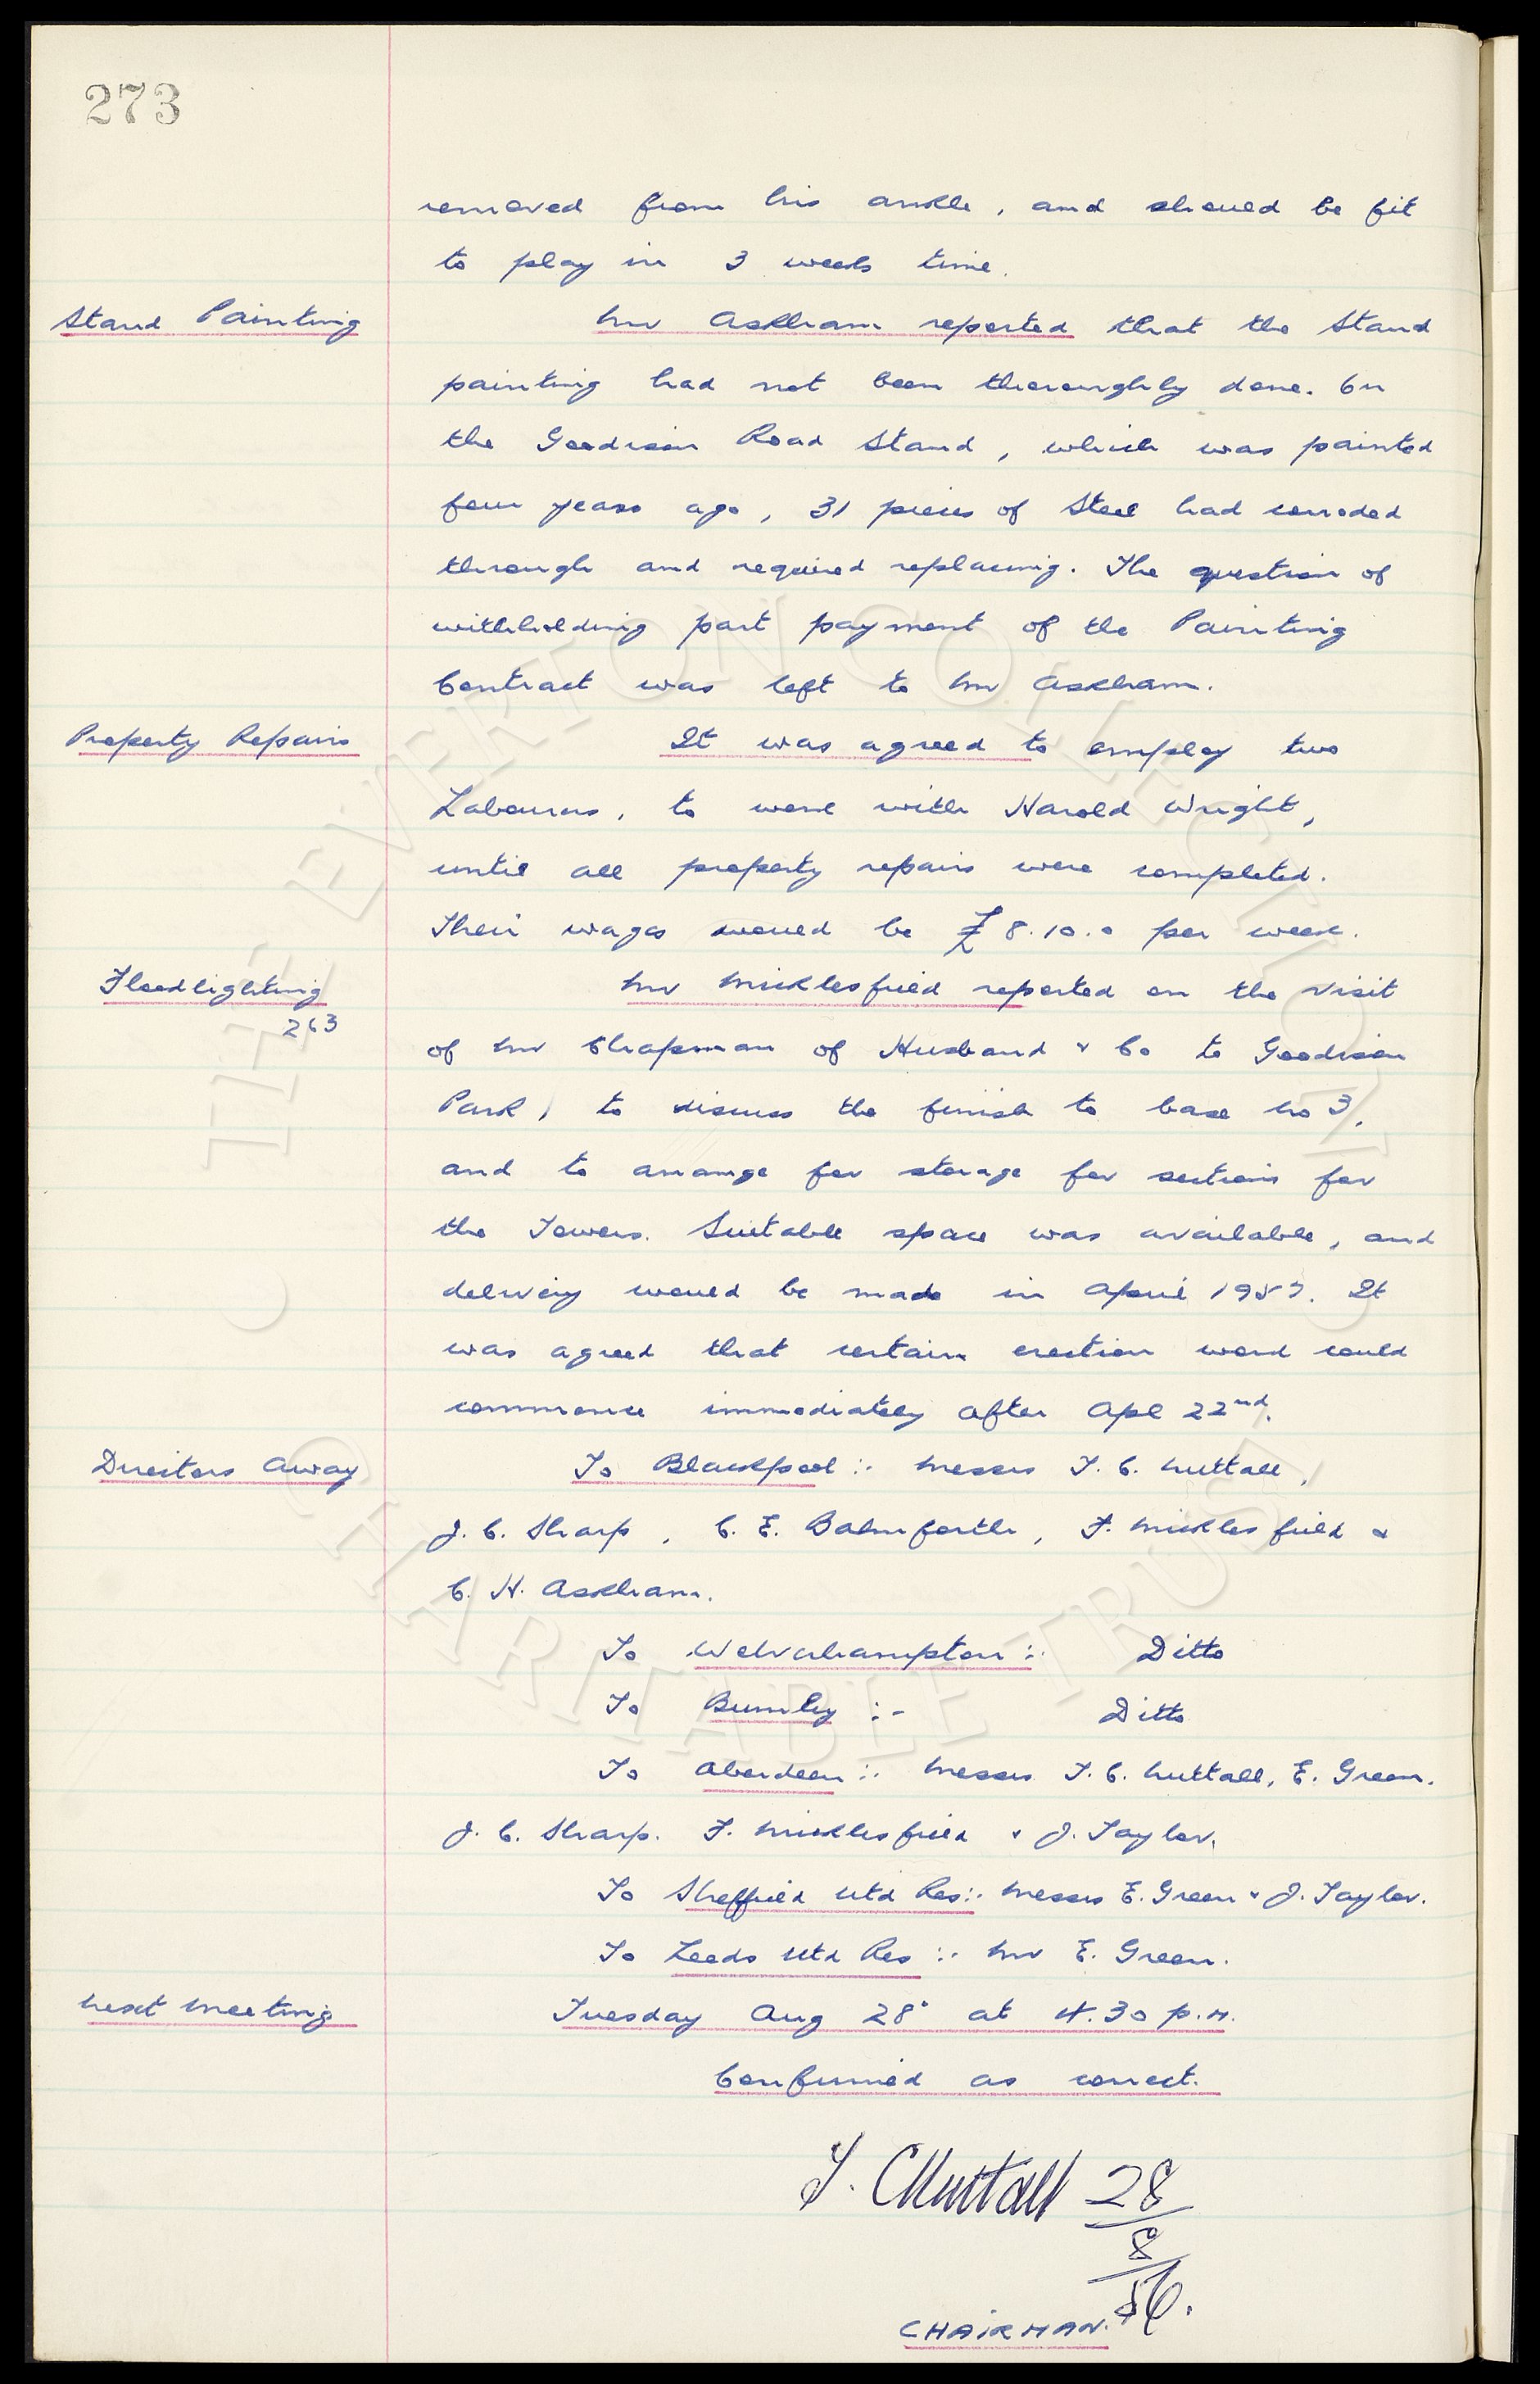 273
removed from his ankle, and should be fit
to play in 3 weeks time.
Stand Painting
Mr Askham reported that the Stand
painting had not been thoroughly done. On
the Goodison Road Stand, which was painted
four years ago, 31 pieces of Steel had corroded
through and required replacing. The question of
withholding part payment of the Painting
Contract was left to Mr Askham.
Property Repairs
It was agreed to employ two
Labourers, to work with Harold Wright,
until all property repairs were completed.
Their wages would be £8.10.0 per week.
Floodlighting
263
Mr Micklesfield reported on the visit
of Mr Chapman of Husband & Co to Goodison
Park, to discuss the finish to base No 3,
and to arrange for storage for sections for
the Towers. Suitable space was available, and
delivery would be made in April 1957. It
was agreed that certain erection work could
commence immediately after Apl 22nd.
Directors Away
To Blackpool :- Messrs T. C. Nuttall,
J. C. Sharp, C. E. Balmforth, F. Micklesfield &
C. H. Askham.
To Wolverhampton :- Ditto
To Burnley :- Ditto
To Aberdeen :- Messrs T. C. Nuttall, E. Green.
J. C. Sharp. F. Micklesfield & J. Taylor.
To Sheffield Utd Res :- Messrs E. Green & J. Taylor.
To Leeds Utd Res :- Mr E. Green.
Next Meeting
Tuesday Aug 28' at 4.30 p.m.
Confirmed as correct.
T. C Nuttall 28/8/56.
CHAIRMAN.
THE EVERTON COLLECTION
CHARITABLE TRUST